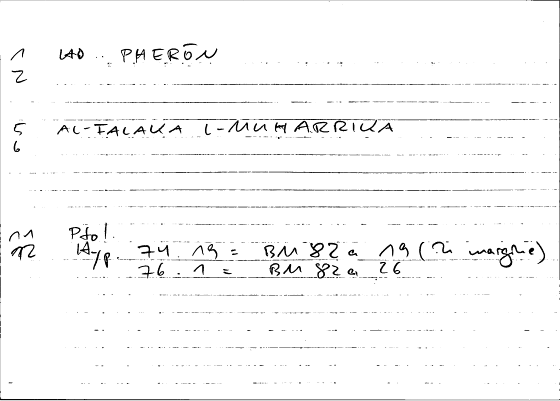 1 IAO .. PHERŌN
2
5 AL-FALAKA L-MUHARRIKA
6
11 Ptol.
12 IA/p. 74 19 = BM 82 a 19 (in margine)
76 . 1 = BM 82 a 26